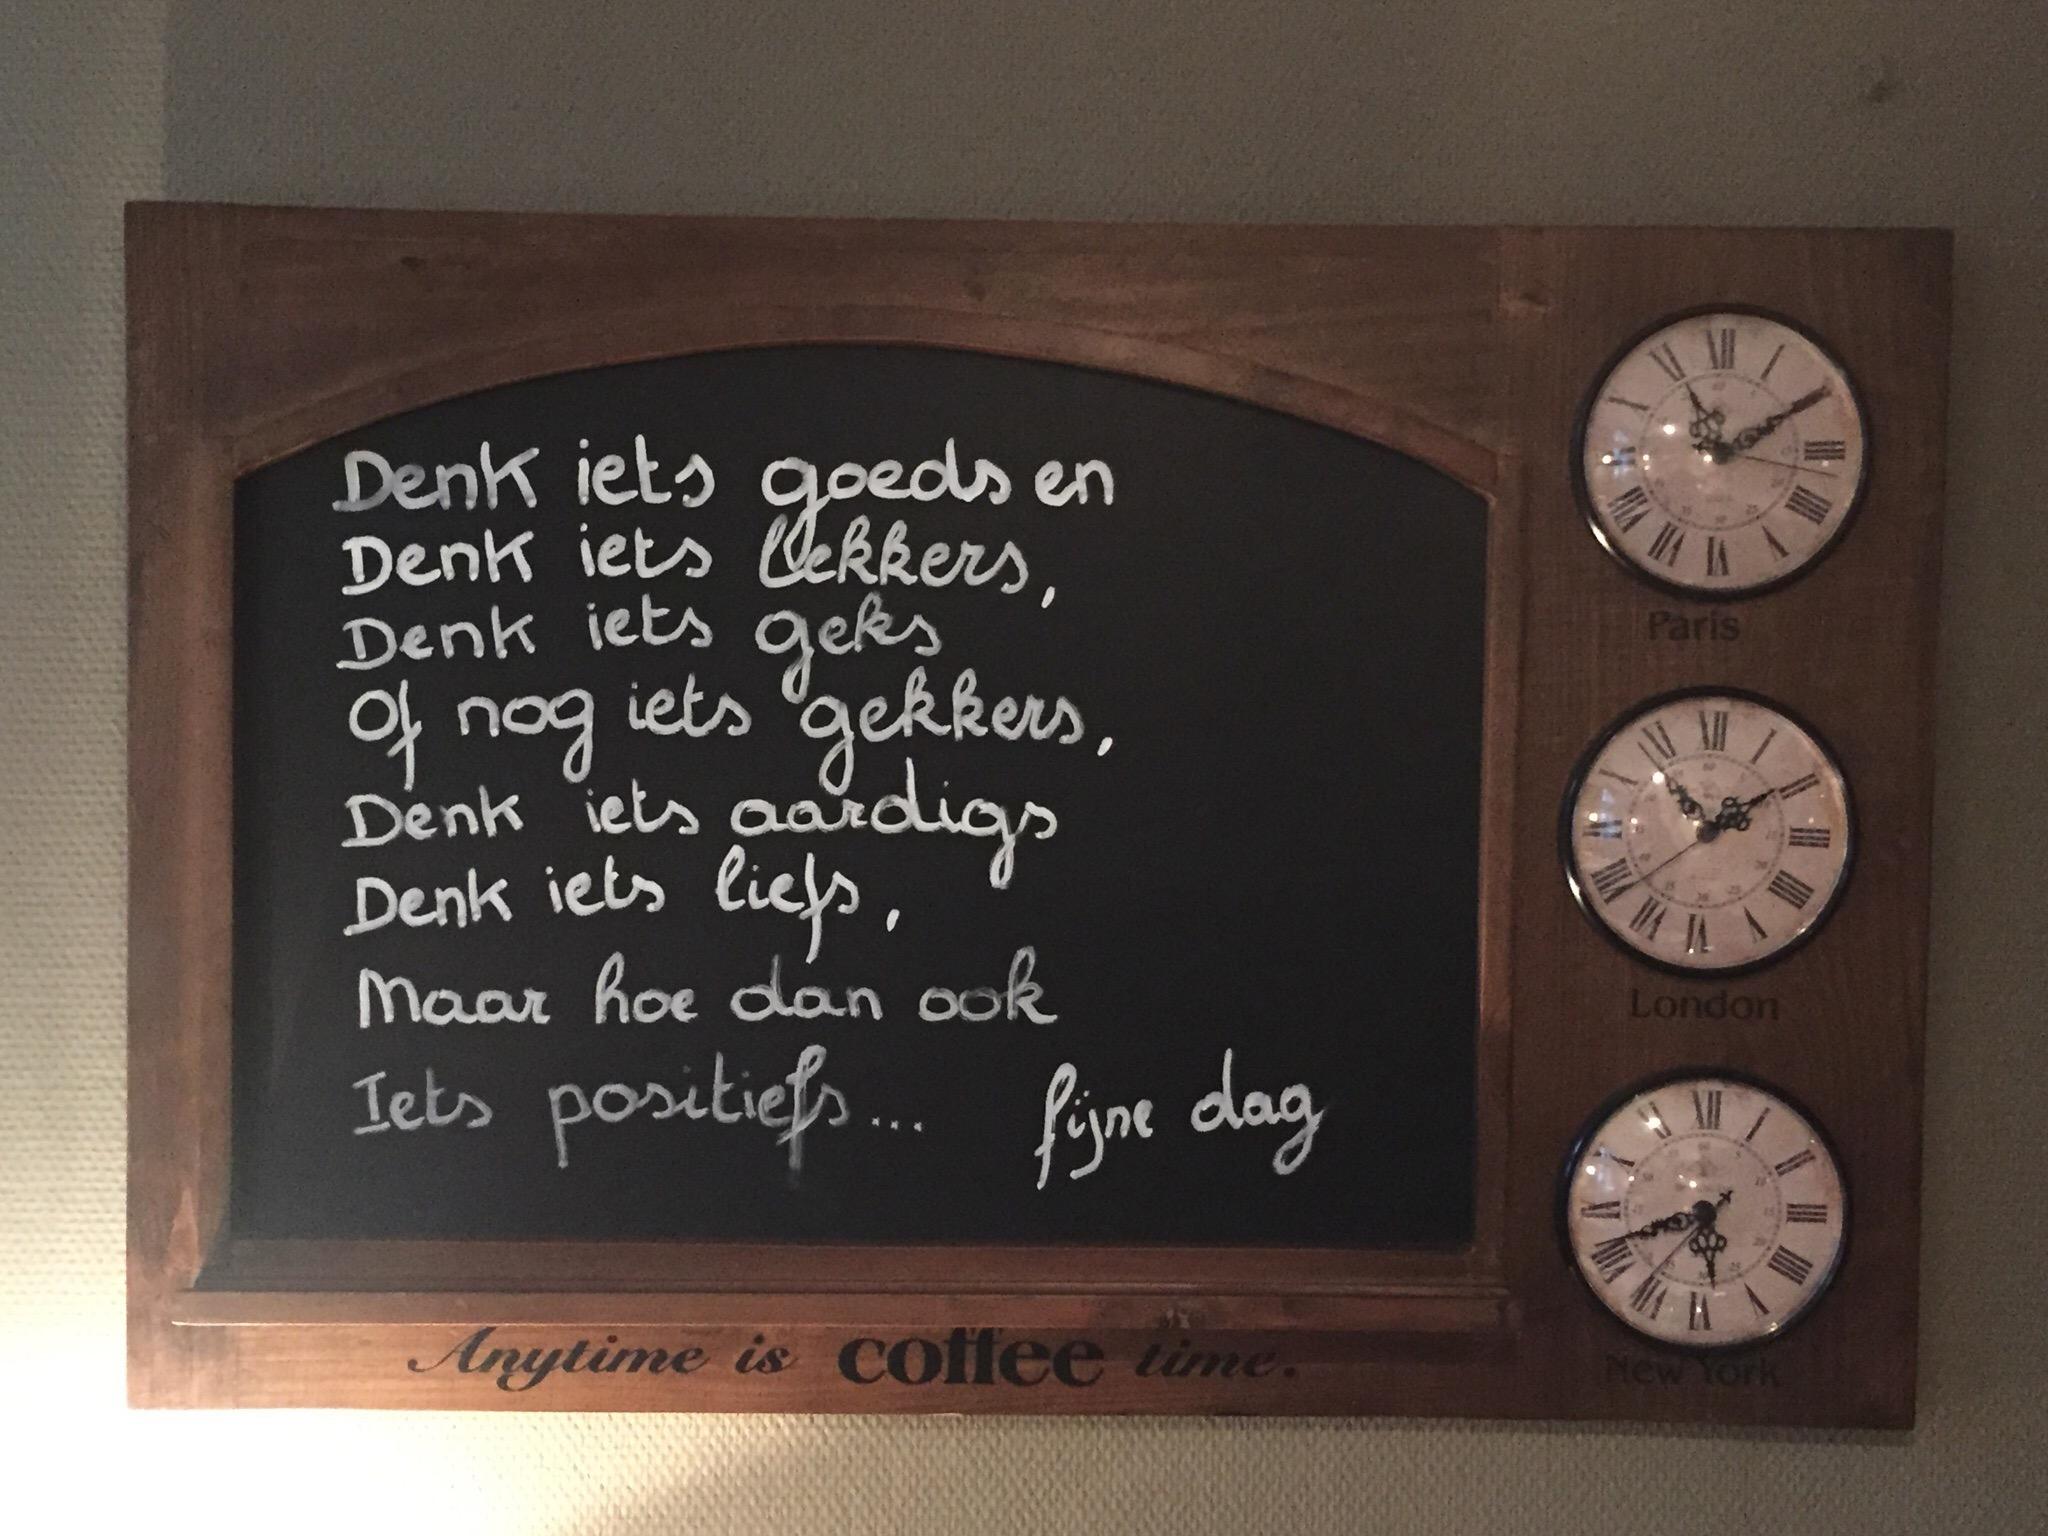 Denk iets goeds en
Denk iets lekkers,
Denk iets geks
Of nog iets gekkers,
Denk iets aardigs
Denk iets liefs,
Maar hoe dan ook
Iets positiefs... fijne dag
Anytime is coffee time.
Paris
London
New York